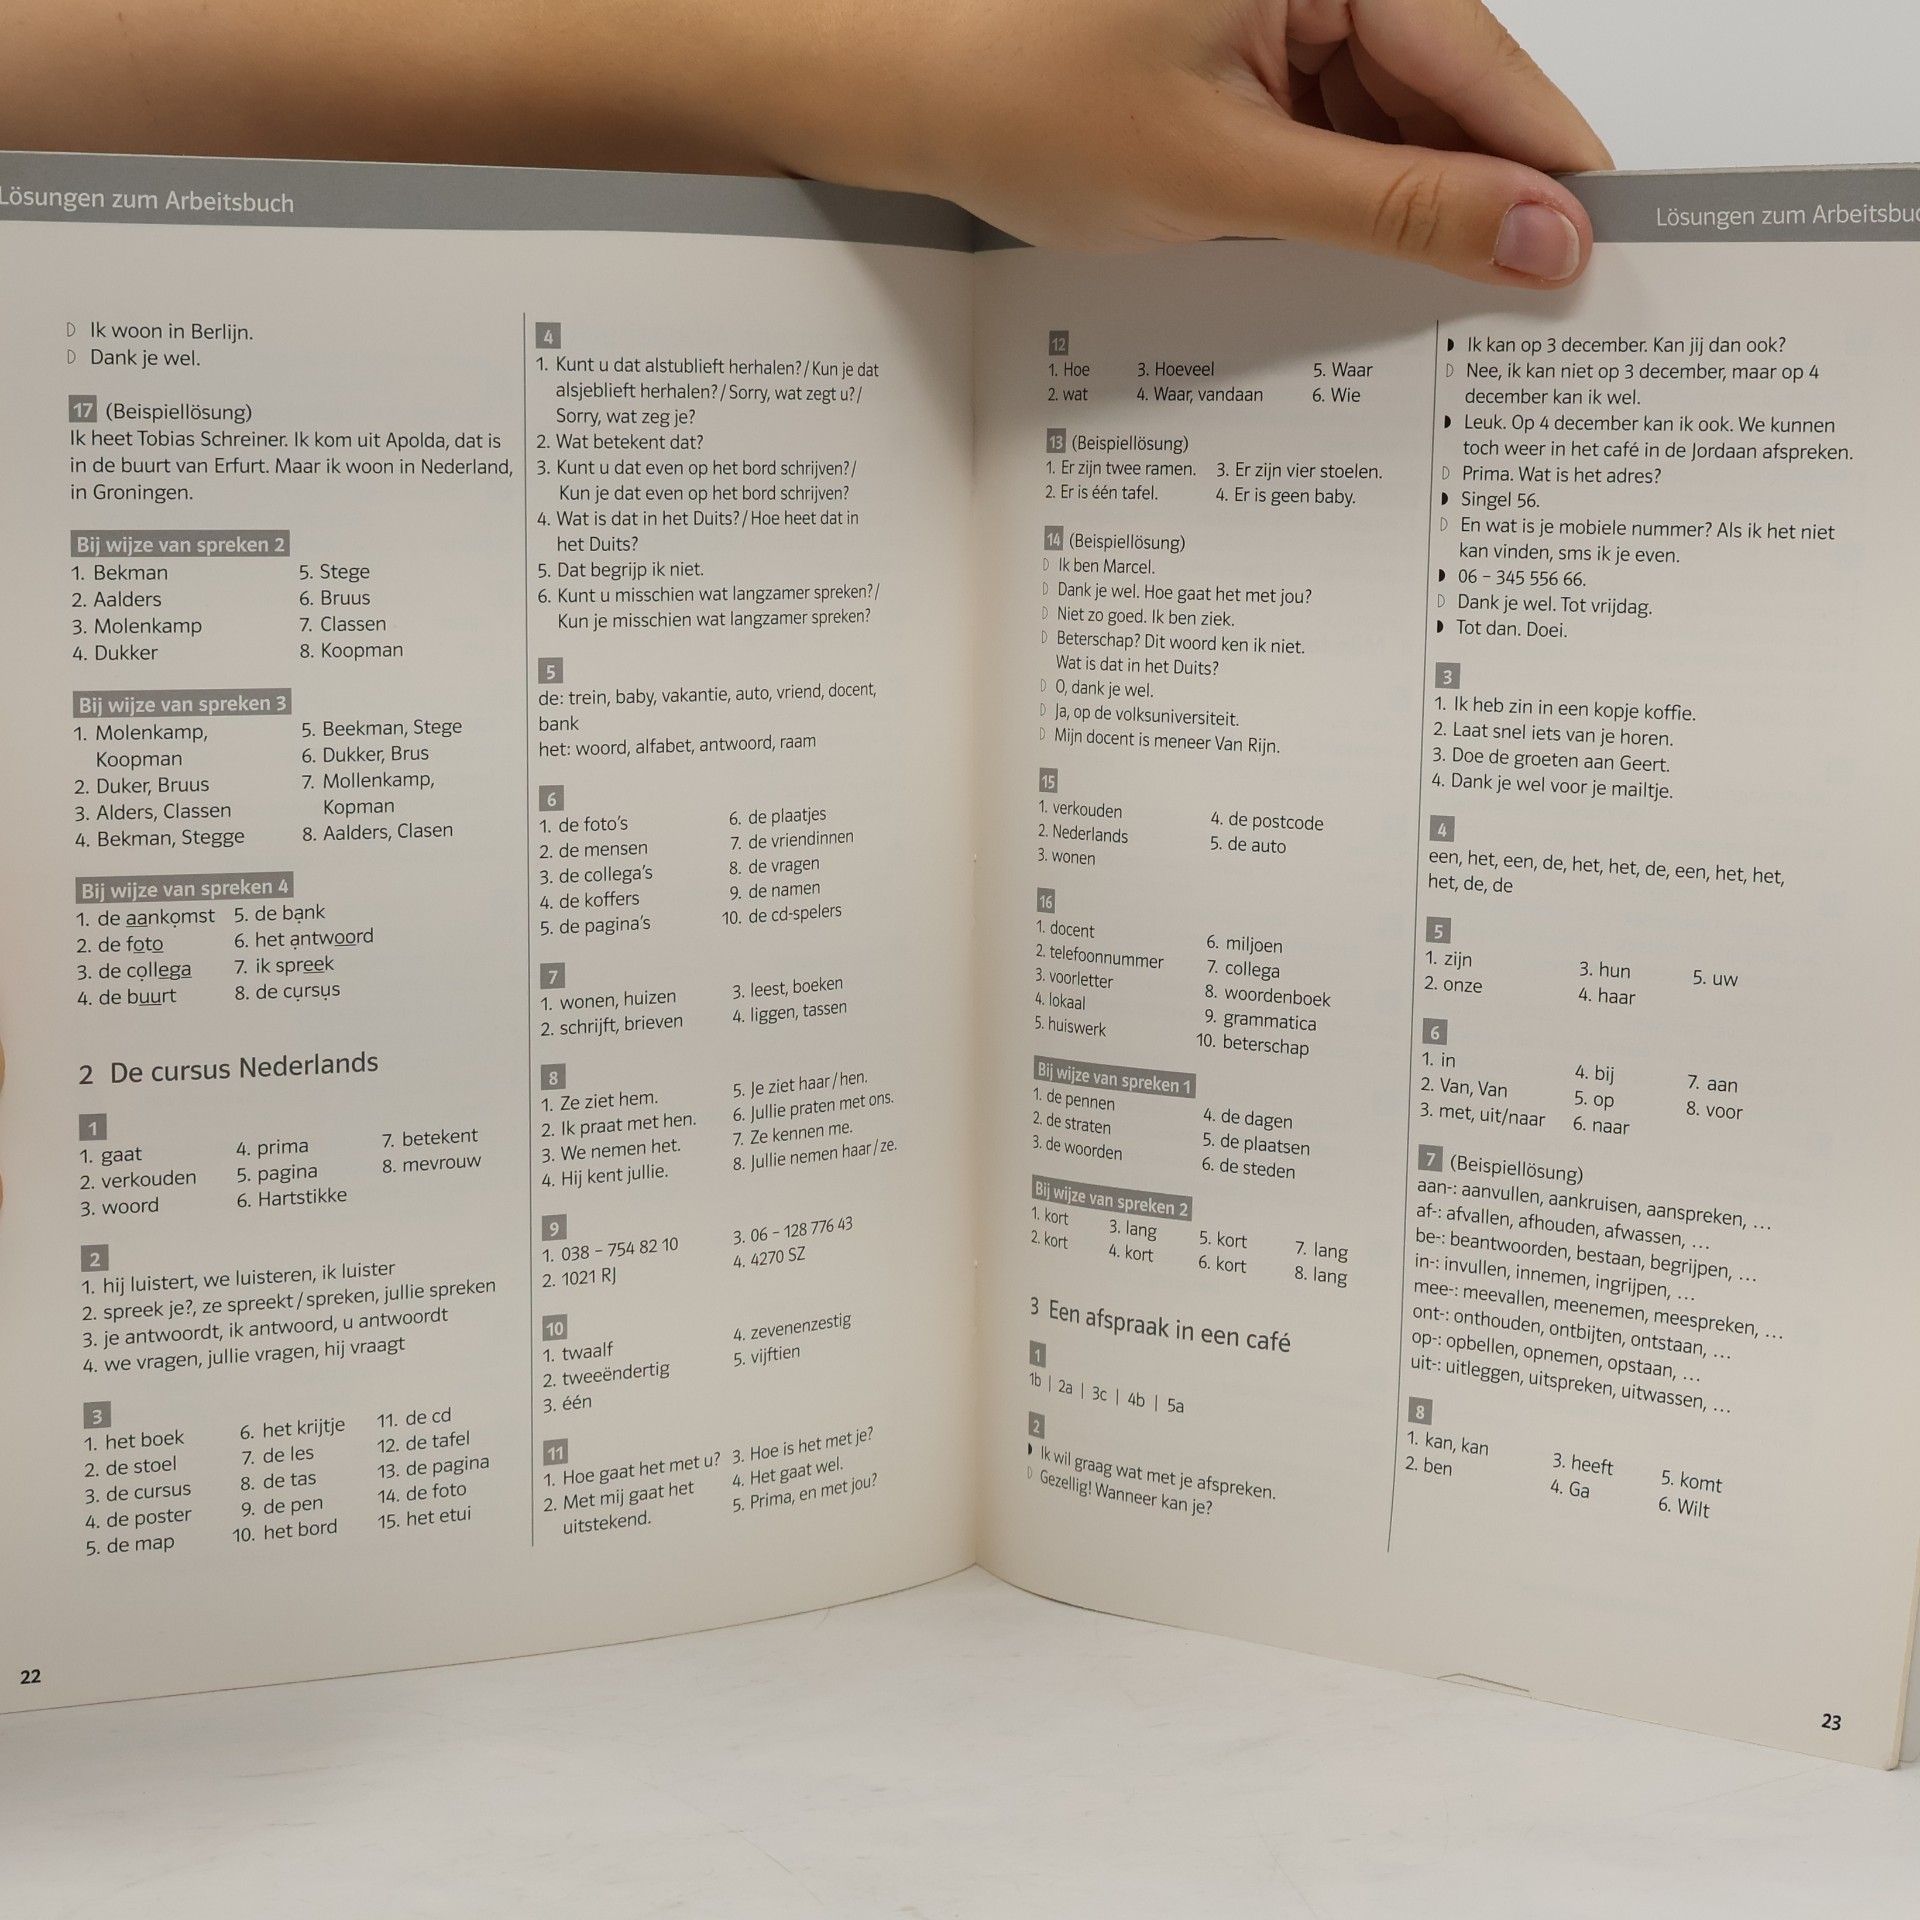 Lösungen zum Arbeitsbuch
D Ik woon in Berlijn.
D Dank je wel.
17 (Beispiellösung)
Ik heet Tobias Schreiner. Ik kom uit Apolda, dat is
in de buurt van Erfurt. Maar ik woon in Nederland,
in Groningen.
Bij wijze van spreken 2
1. Bekman 5. Stege
2. Aalders 6. Bruus
3. Molenkamp 7. Classen
4. Dukker 8. Koopman
Bij wijze van spreken 3
1. Molenkamp, 5. Beekman, Stege
Koopman 6. Dukker, Brus
2. Duker, Bruus 7. Mollenkamp,
3. Alders, Classen Kopman
4. Bekman, Stegge 8. Aalders, Clasen
Bij wijze van spreken 4
1. de aankomst 5. de bank
2. de foto 6. het antwoord
3. de collega 7. ik spreek
4. de buurt 8. de cursus
2 De cursus Nederlands
1
1. gaat 4. prima 7. betekent
2. verkouden 5. pagina 8. mevrouw
3. woord 6. Hartstikke
2
1. hij luistert, we luisteren, ik luister
2. spreek je?, ze spreekt/spreken, jullie spreken
3. je antwoordt, ik antwoord, u antwoordt
4. we vragen, jullie vragen, hij vraagt
3
1. het boek 6. het krijtje 11. de cd
2. de stoel 7. de les 12. de tafel
3. de cursus 8. de tas 13. de pagina
4. de poster 9. de pen 14. de foto
5. de map 10. het bord 15. het etui
22
4
1. Kunt u dat alstublieft herhalen?/Kun je dat
alsjeblieft herhalen?/Sorry, wat zegt u?/
Sorry, wat zeg je?
2. Wat betekent dat?
3. Kunt u dat even op het bord schrijven?/
Kun je dat even op het bord schrijven?
4. Wat is dat in het Duits?/Hoe heet dat in
het Duits?
5. Dat begrijp ik niet.
6. Kunt u misschien wat langzamer spreken?/
Kun je misschien wat langzamer spreken?
5
de: trein, baby, vakantie, auto, vriend, docent,
bank
het: woord, alfabet, antwoord, raam
6
1. de foto's 6. de plaatjes
2. de mensen 7. de vriendinnen
3. de collega's 8. de vragen
4. de koffers 9. de namen
5. de pagina's 10. de cd-spelers
7
1. wonen, huizen 3. leest, boeken
2. schrijft, brieven 4. liggen, tassen
8
1. Ze ziet hem. 5. Je ziet haar/hen.
2. Ik praat met hen. 6. Jullie praten met ons.
3. We nemen het. 7. Ze kennen me.
4. Hij kent jullie. 8. Jullie nemen haar/ze.
9
1. 038 – 754 82 10 3. 06 – 128 776 43
2. 1021 RJ 4. 4270 SZ
10
1. twaalf 4. zevenenzestig
2. tweeëndertig 5. vijftien
3. één
11
1. Hoe gaat het met u? 3. Hoe is het met je?
2. Met mij gaat het 4. Het gaat wel.
uitstekend. 5. Prima, en met jou?
Lösungen zum Arbeitsbuc
12
1. Hoe 3. Hoeveel 5. Waar
2. wat 4. Waar, vandaan 6. Wie
13 (Beispiellösung)
1. Er zijn twee ramen. 3. Er zijn vier stoelen.
2. Er is één tafel. 4. Er is geen baby.
14 (Beispiellösung)
D Ik ben Marcel.
D Dank je wel. Hoe gaat het met jou?
D Niet zo goed. Ik ben ziek.
D Beterschap? Dit woord ken ik niet.
Wat is dat in het Duits?
D O, dank je wel.
D Ja, op de volksuniversiteit.
D Mijn docent is meneer Van Rijn.
15
1. verkouden 4. de postcode
2. Nederlands 5. de auto
3. wonen
16
1. docent 6. miljoen
2. telefoonnummer 7. collega
3. voorletter 8. woordenboek
4. lokaal 9. grammatica
5. huiswerk 10. beterschap
Bij wijze van spreken 1
1. de pennen 4. de dagen
2. de straten 5. de plaatsen
3. de woorden 6. de steden
Bij wijze van spreken 2
1. kort 3. lang 5. kort 7. lang
2. kort 4. kort 6. kort 8. lang
3 Een afspraak in een café
1
1b | 2a | 3c | 4b | 5a
2
◗ Ik wil graag wat met je afspreken.
D Gezellig! Wanneer kan je?
◗ Ik kan op 3 december. Kan jij dan ook?
D Nee, ik kan niet op 3 december, maar op 4
december kan ik wel.
◗ Leuk. Op 4 december kan ik ook. We kunnen
toch weer in het café in de Jordaan afspreken.
D Prima. Wat is het adres?
◗ Singel 56.
D En wat is je mobiele nummer? Als ik het niet
kan vinden, sms ik je even.
◗ 06 – 345 556 66.
D Dank je wel. Tot vrijdag.
◗ Tot dan. Doei.
3
1. Ik heb zin in een kopje koffie.
2. Laat snel iets van je horen.
3. Doe de groeten aan Geert.
4. Dank je wel voor je mailtje.
4
een, het, een, de, het, het, de, een, het, het,
het, de, de
5
1. zijn 3. hun 5. uw
2. onze 4. haar
6
1. in 4. bij 7. aan
2. Van, Van 5. op 8. voor
3. met, uit/naar 6. naar
7 (Beispiellösung)
aan-: aanvullen, aankruisen, aanspreken, …
af-: afvallen, afhouden, afwassen, …
be-: beantwoorden, bestaan, begrijpen, …
in-: invullen, innemen, ingrijpen, …
mee-: meevallen, meenemen, meespreken, …
ont-: onthouden, ontbijten, ontstaan, …
op-: opbellen, opnemen, opstaan, …
uit-: uitleggen, uitspreken, uitwassen, …
8
1. kan, kan 3. heeft 5. komt
2. ben 4. Ga 6. Wilt
23